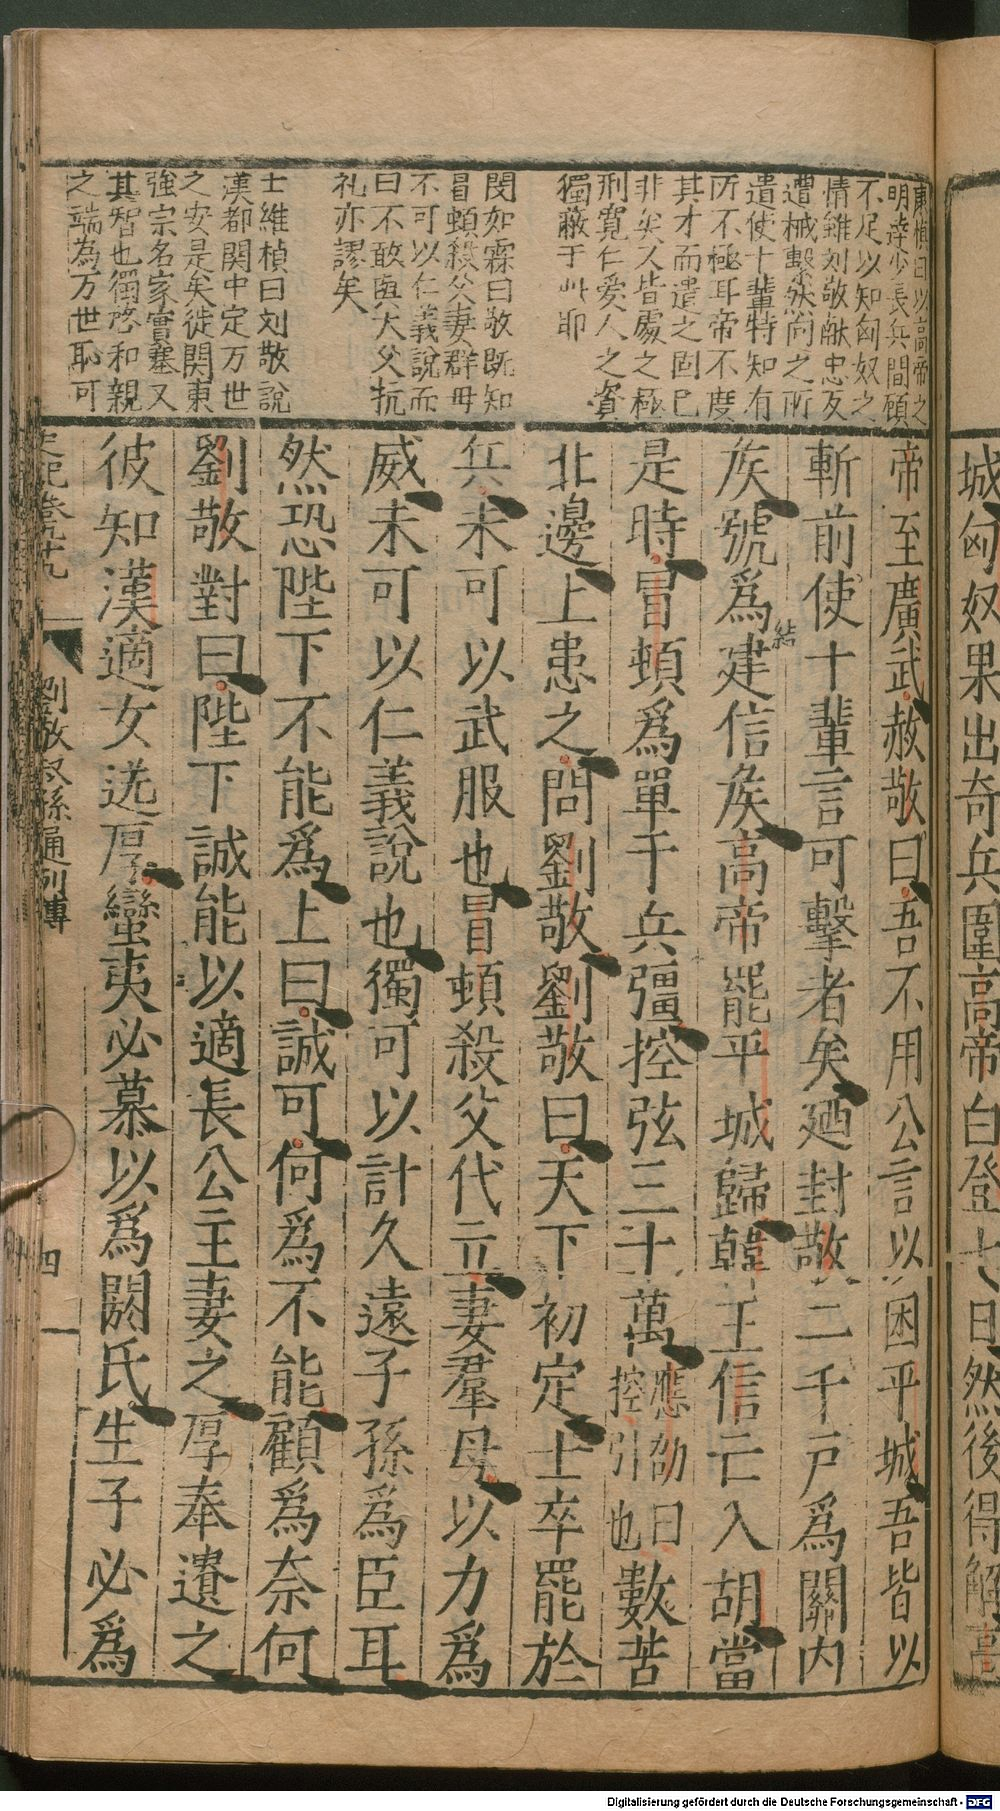 城匈奴果出奇兵圍高帝白登七日然後得解高
康楨曰以高帝之
明逹少長兵間顧
不足以知匈奴之
情雖刘敬献忠反
遭械繫然向之所
遣使十輩特知有
所不極耳帝不度
其才而遣之固已
非矣又皆處之極
刑寬仁愛人之資
獨蔽于此耶
閔如霖曰敬既知
冒頓殺父妻群母
不可以仁義說而
曰不敢與大父抗
礼亦謬矣
士維楨曰刘敬說
漢都関中定万世
之安是矣徙関東
強宗名家實塞又
其智也獨慫和親
之端為万世恥可
帝至廣武赦敬曰吾不用公言以困平城吾皆以
斬前使十輩言可擊者矣廼封敬二千戸爲關内
矦號爲建信矦高帝罷平城歸韓王信亡入胡當
結
是時冒頓爲單于兵彊控弦三十萬應劭曰控引也數苦
北邊上患之問劉敬劉敬曰天下初定士卒罷於
兵未可以武服也冒頓殺父代立妻羣母以力爲
威未可以仁義說也獨可以計久遠子孫爲臣耳
然恐陛下不能爲上曰誠可何爲不能顧爲奈何
劉敬對曰陛下誠能以適長公主妻之厚奉遺之
彼知漢適女送厚蠻夷必慕以爲閼氏生子必爲
史記卷九十九
劉敬叔孫通列傳
四
Digitalisierung gefördert durch die Deutsche Forschungsgemeinschaft - DFG